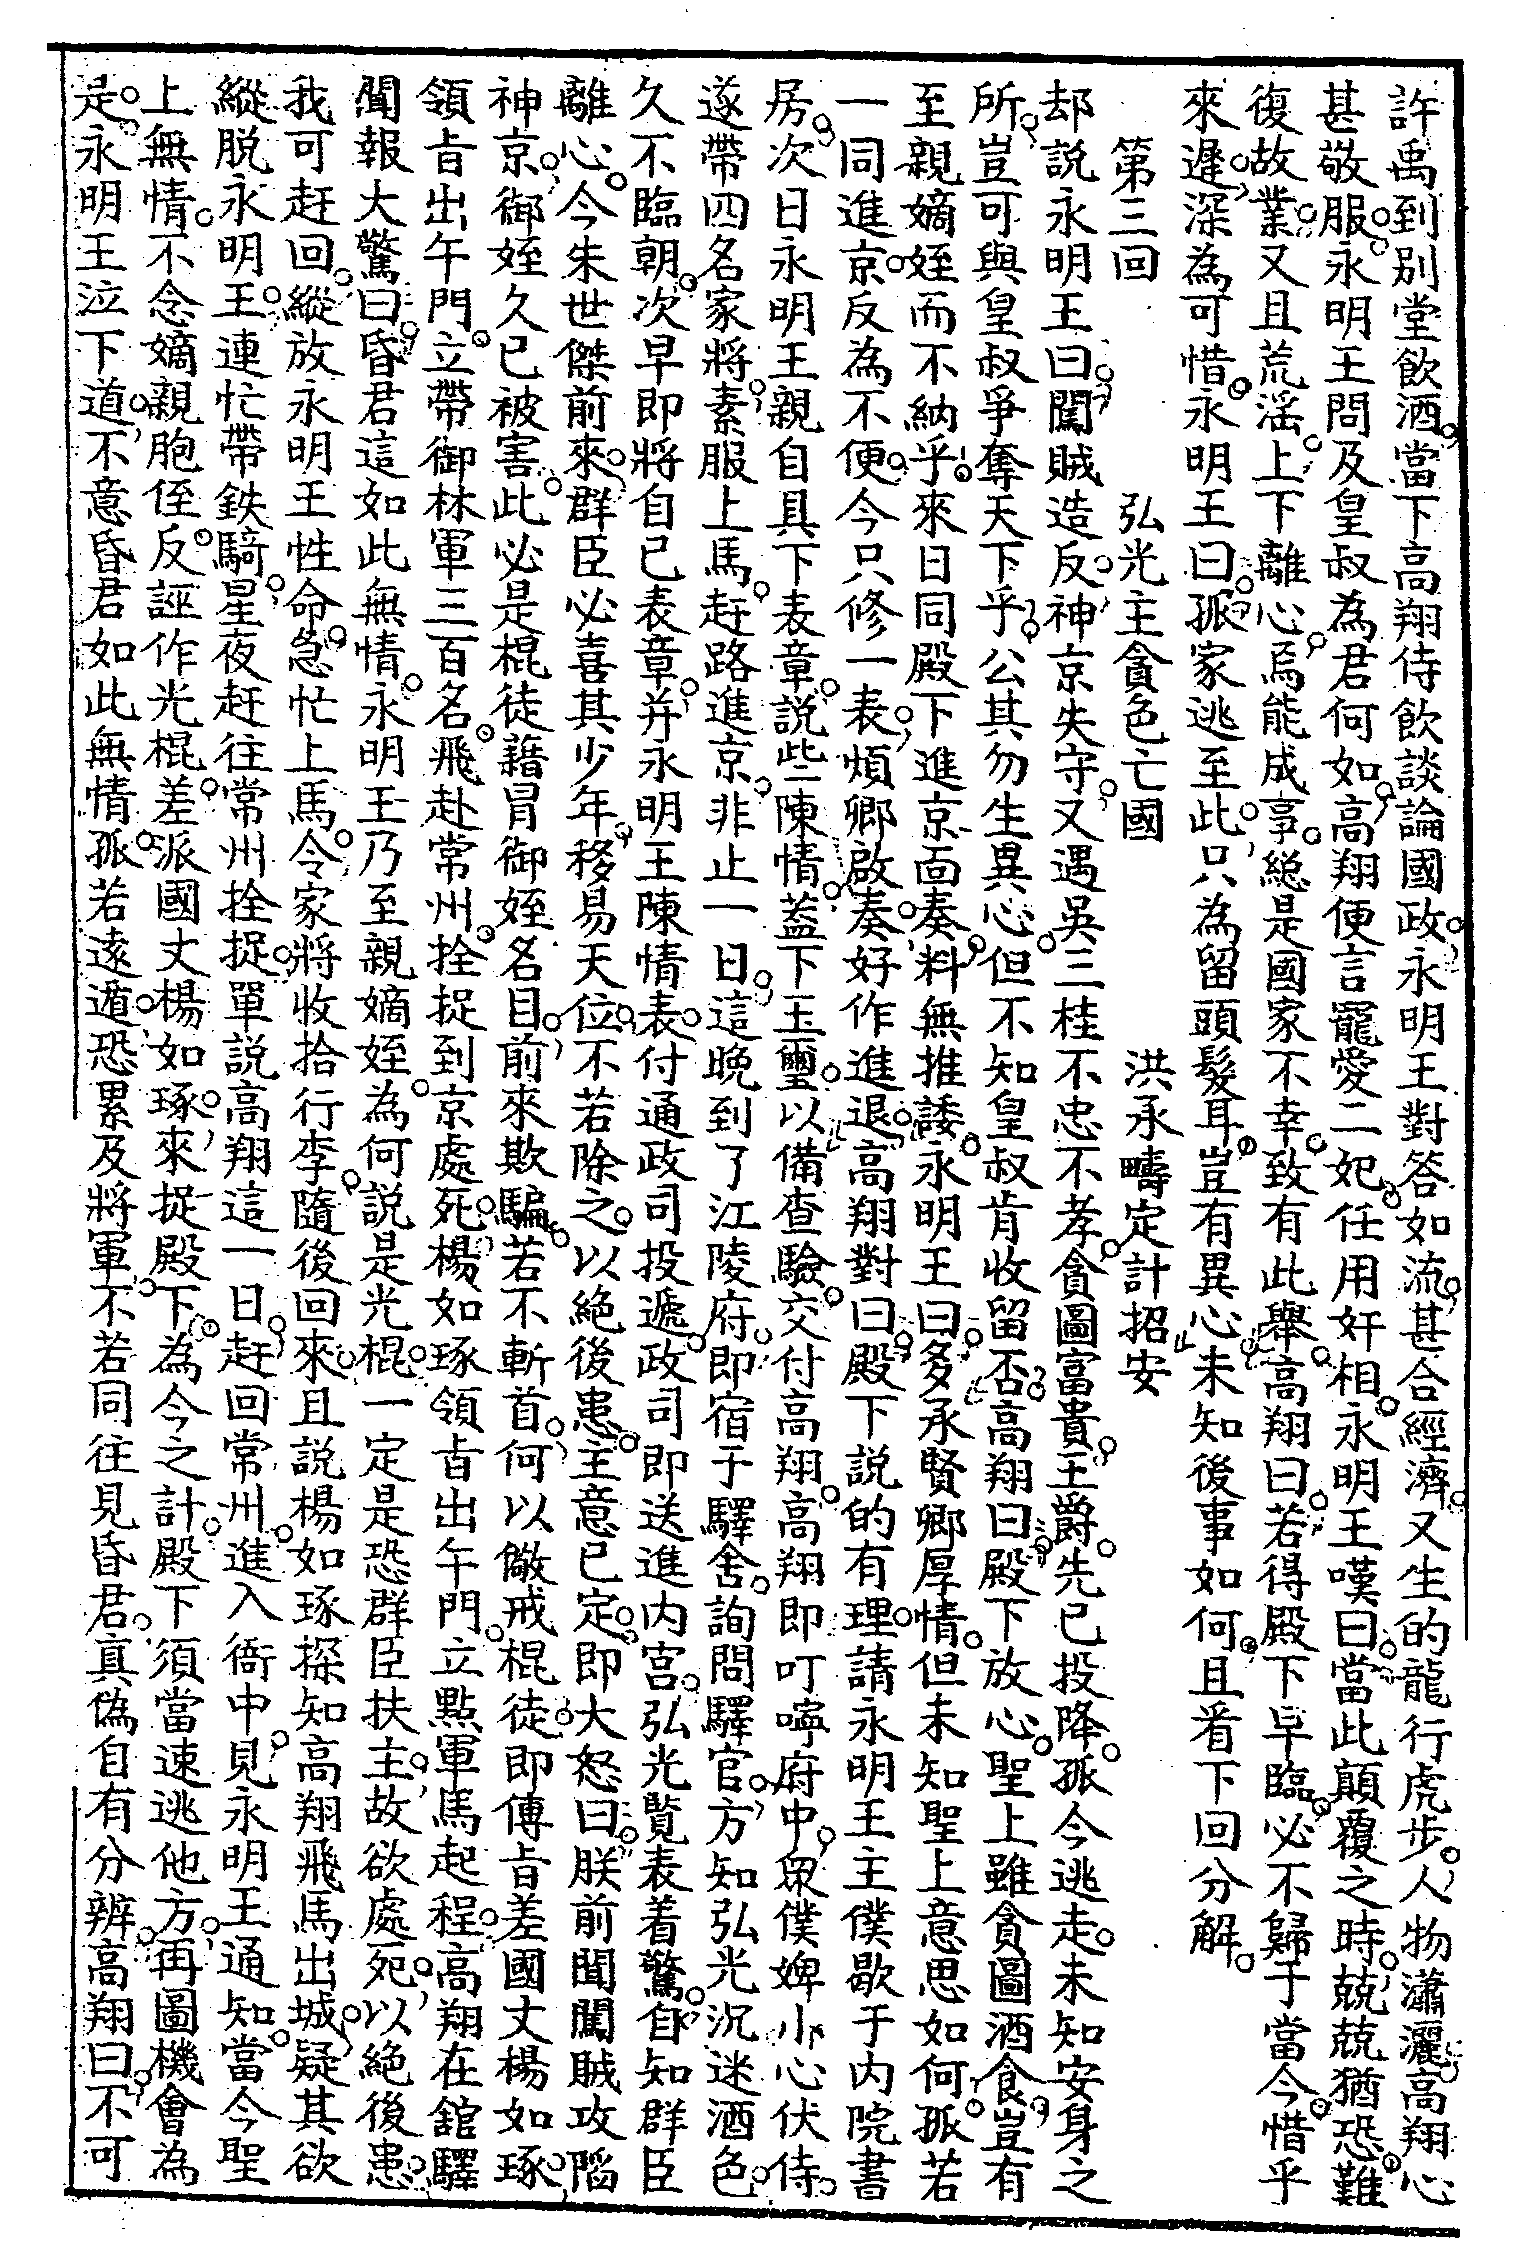 許禹到别堂飲酒當下高翔侍飲談論國政永明王對答如流甚合經濟又生的龍行虎步人物瀟灑高翔心
甚敬服永明王問及皇叔為君何如高翔便言寵愛二妃任用奸相永明王嘆曰當此顛覆之時兢兢猶恐難
復故業又且荒滛上下離心焉能成事緫是國家不幸致有此舉高翔曰若得殿下早臨必不歸于當今惜乎
來遲深為可惜永明王曰孤家逃至此只為留頭髮耳豈有異心未知後事如何且看下回分解
第三回　弘光主貪色亡國　洪承疇定計招安
却説永明王曰闖賊造反神京失守又遇吳三桂不忠不孝貪圖富貴王爵先已投降孤今逃走未知安身之
所豈可與皇叔爭奪天下乎公其勿生異心但不知皇叔肯收留否高翔曰殿下放心聖上雖貪圖酒食豈有
至親嫡姪而不納乎來日同殿下進京面奏料無推諉永明王曰多承賢卿厚情但未知聖上意思如何孤若
一同進京反為不便今只修一表煩卿啟奏好作進退高翔對曰殿下説的有理請永明王主僕歇于内院書
房次日永明王親自具下表章説些陳情葢下玉璽以備查驗交付高翔高翔即叮嚀府中眾僕婢小心伏侍
遂帶四名家將素服上馬赶路進京非止一日這晚到了江陵府即宿于驛舍詢問驛官方知弘光沉迷酒色
久不臨朝次早即將自已表章并永明王陳情表付通政司投遞政司即送進内宫弘光覧表着驚自知群臣
離心今朱世傑前來群臣必喜其少年移易天位不若除之以絕後患主意已定即大怒曰朕前聞闖賊攻䧟
神京御姪久已被害此必是棍徒藉冒御姪名目前來欺騙若不斬首何以儆戒棍徒即傳㫖差國丈楊如琢
領㫖出午門立帶御林軍三百名飛赴常州拴捉到京處死楊如琢領㫖出午門立點軍馬起程高翔在舘驛
聞報大驚曰昏君這如此無情永明王乃至親嫡姪為何説是光棍一定是恐群臣扶主故欲處死以絕後患
我可赶回縱放永明王性命急忙上馬令家將收拾行李隨後回來且説楊如琢探知高翔飛馬出城疑其欲
縱脱永明王連忙帶鉄騎星夜赶往常州拴捉單説高翔這一日赶回常州進入衙中見永明王通知當今聖
上無情不念嫡親胞侄反誣作光棍差派國丈楊如琢來捉殿下為今之計殿下須當速逃他方再圖機會為
是永明王泣下道不意昏君如此無情孤若逺遁恐累及將軍不若同往見昏君真偽自有分辨高翔曰不可